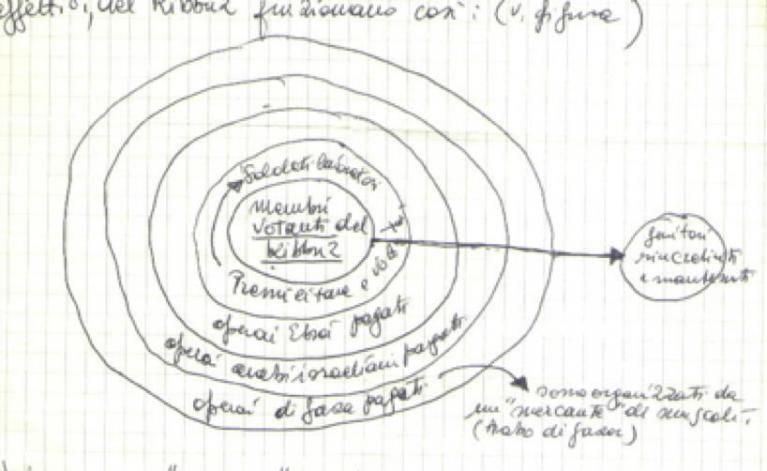 effettivi, nel Kibbuz funzionano così: (v. figura)
Soldati lavoratori
membri
votanti del
kibbuz
Premilitare e
operai Ebrei pagati
operai arabi israeliani pagati
operai di gaza pagati
genitori
rincretiniti
e mantenuti
sono organizzati da
un "mercante" di muscoli.
(Arabo di gaza)